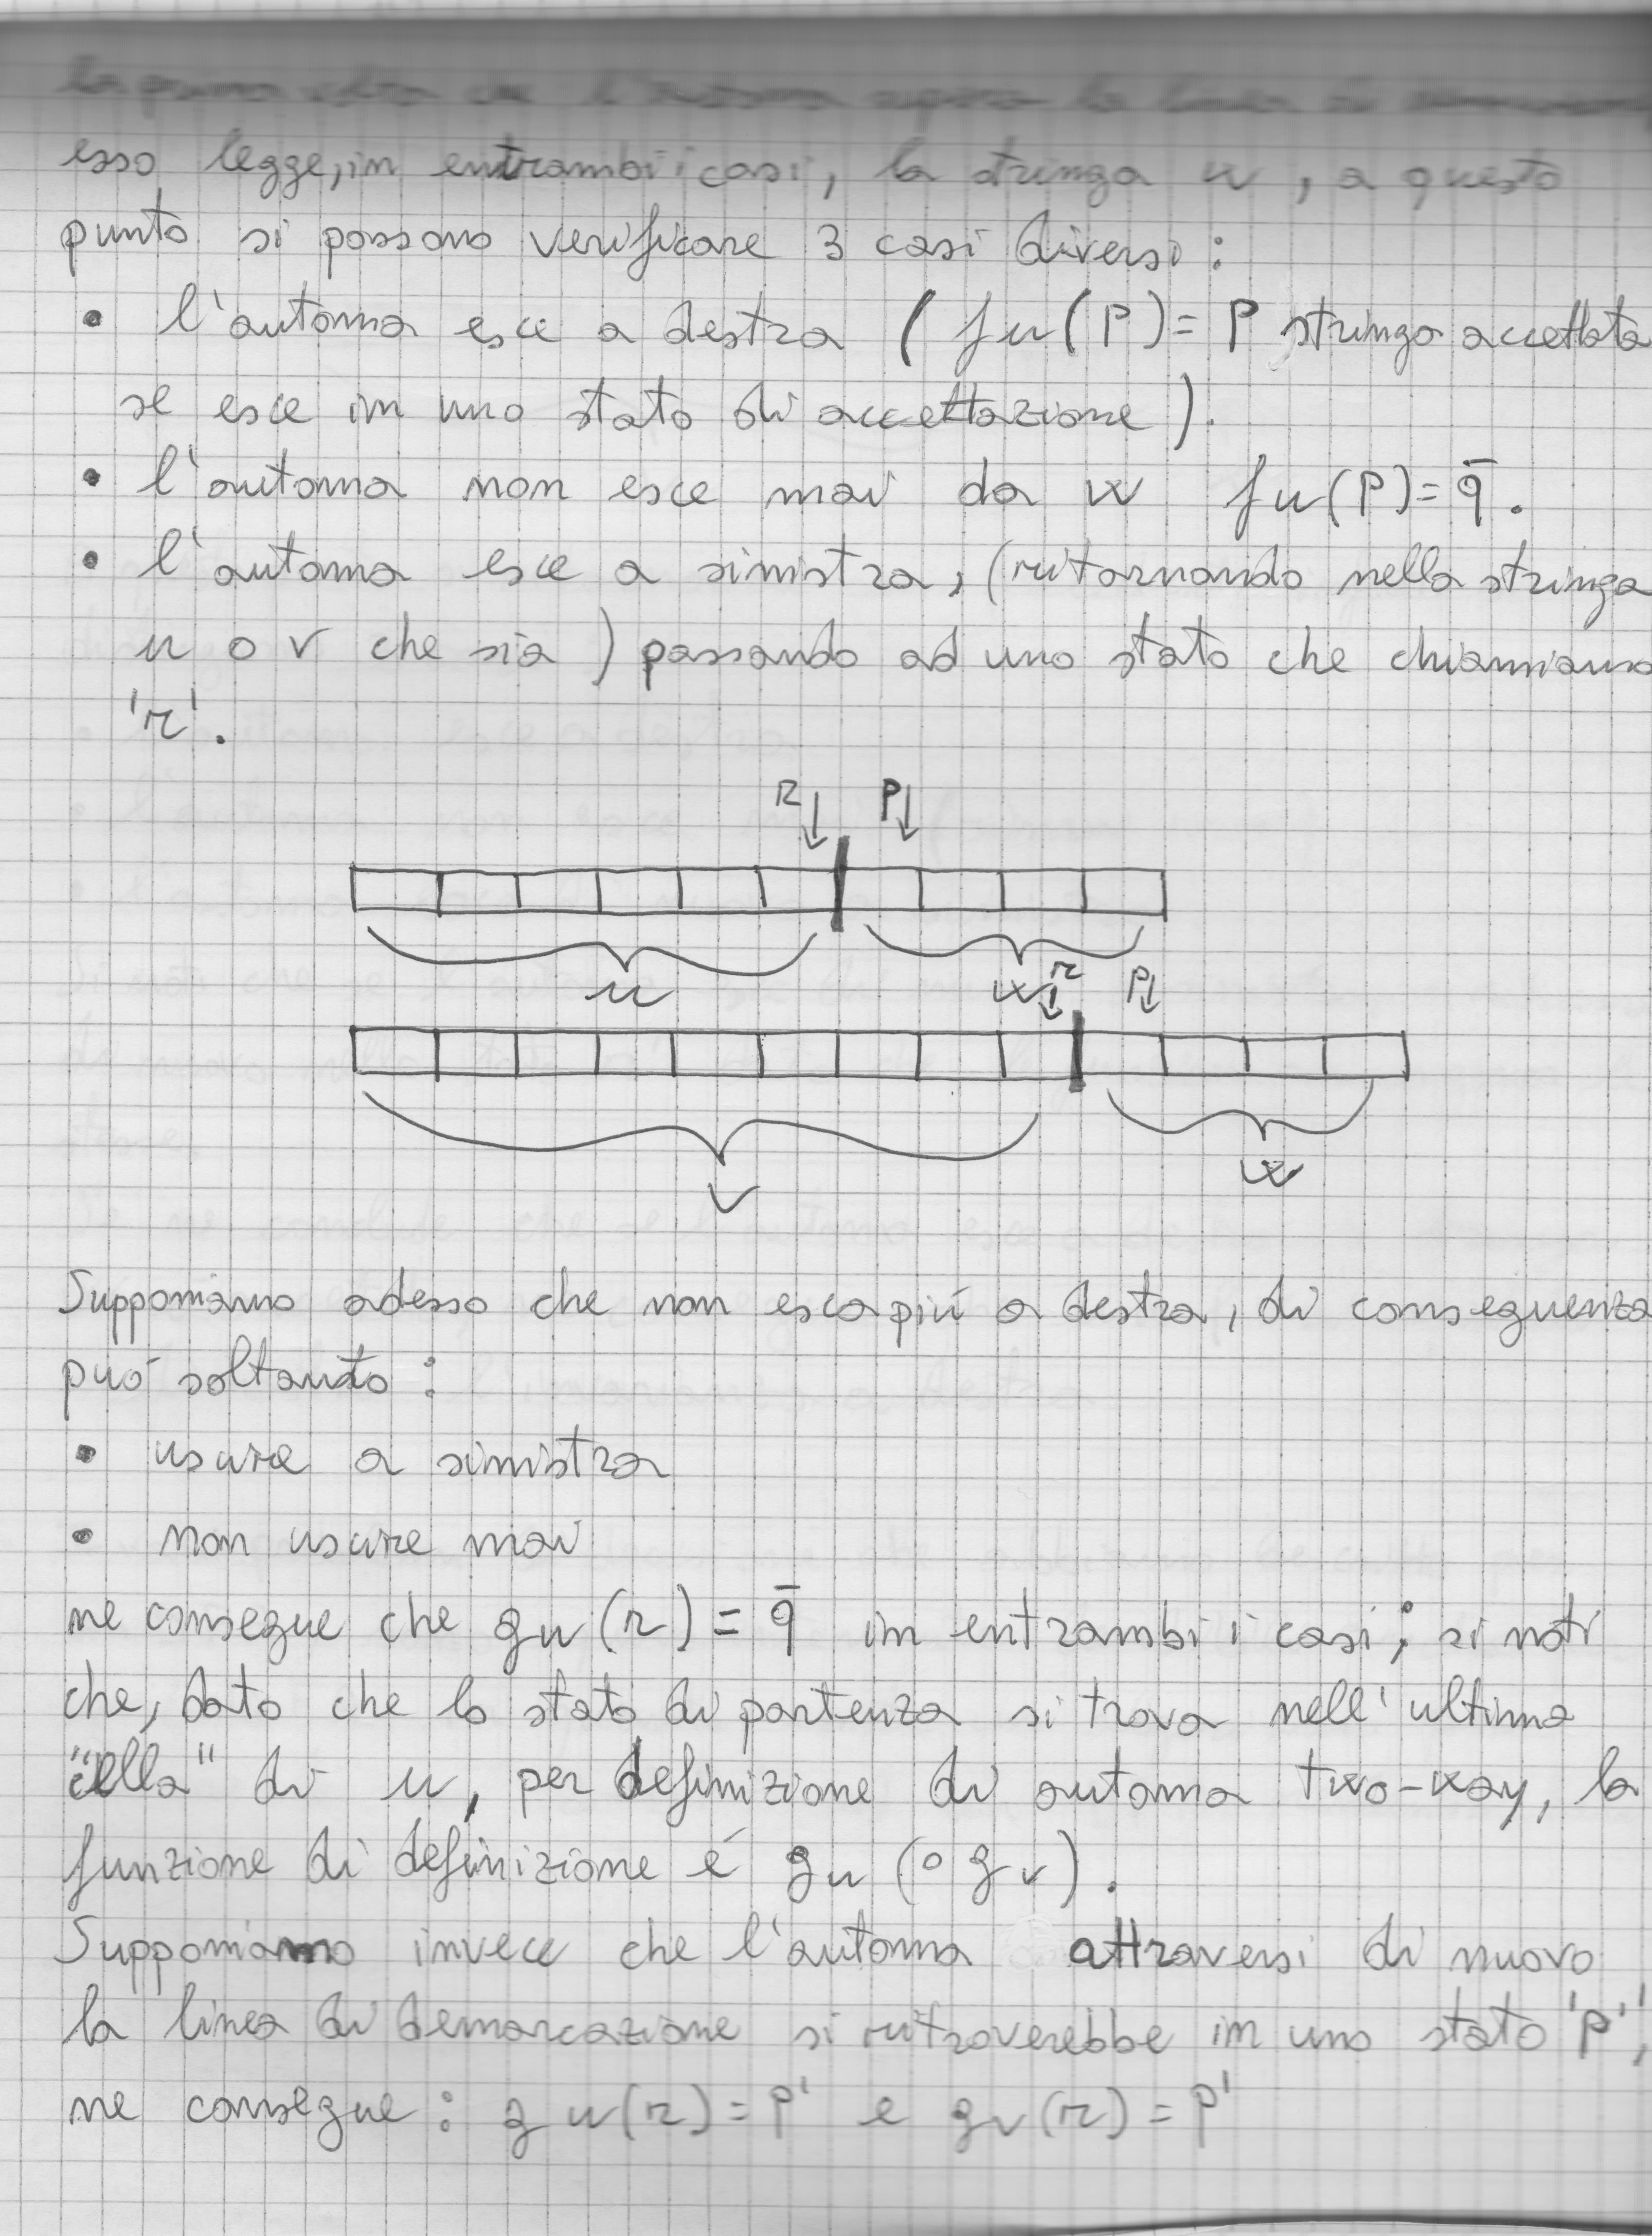 la prima volta che l'automa supera la linea di
esso legge, in entrambi i casi, la stringa w, a questo
punto si possono verificare 3 casi diversi:
• l'automa esce a destra (fu(P)=P stringa accettata
se esce in uno stato di accettazione).
• l'automa non esce mai da w fu(P)=q̄.
• l'automa esce a sinistra, (ritornando nella stringa
u o v che sia) passando ad uno stato che chiamiamo
'r'.
R↓ P↓
u w
r↓ P↓
v w
Supponiamo adesso che non esca più a destra, di conseguenza
può soltanto:
• uscire a sinistra
• non uscire mai
ne consegue che gu(r)=q̄ in entrambi i casi; si noti
che, dato che lo stato di partenza si trova nell'ultima
"cella" di u, per definizione di automa two-way, la
funzione di definizione é gu (o gv).
Supponiamo invece che l'automa attraversi di nuovo
la linea di demarcazione si ritroverebbe in uno stato 'P'',
ne consegue: gu(r)=P' e gv(r)=P'